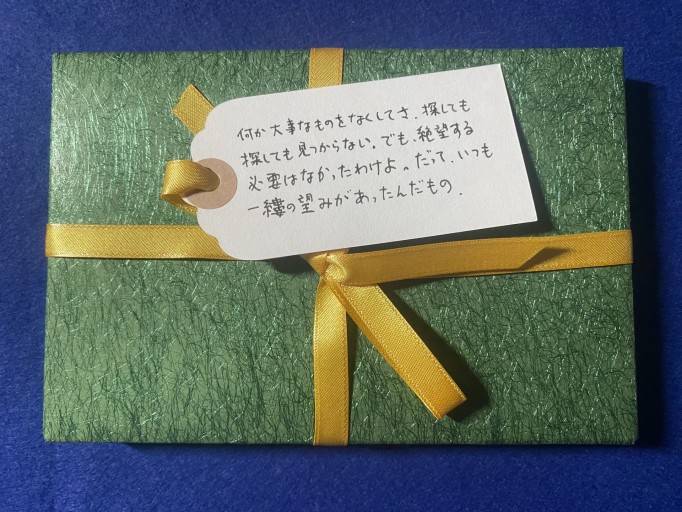 何か大事なものをなくしてさ、探しても
探しても見つからない。でも、絶望する
必要はなかったわけよ。だって、いつも
一縷の望みがあったんだもの.